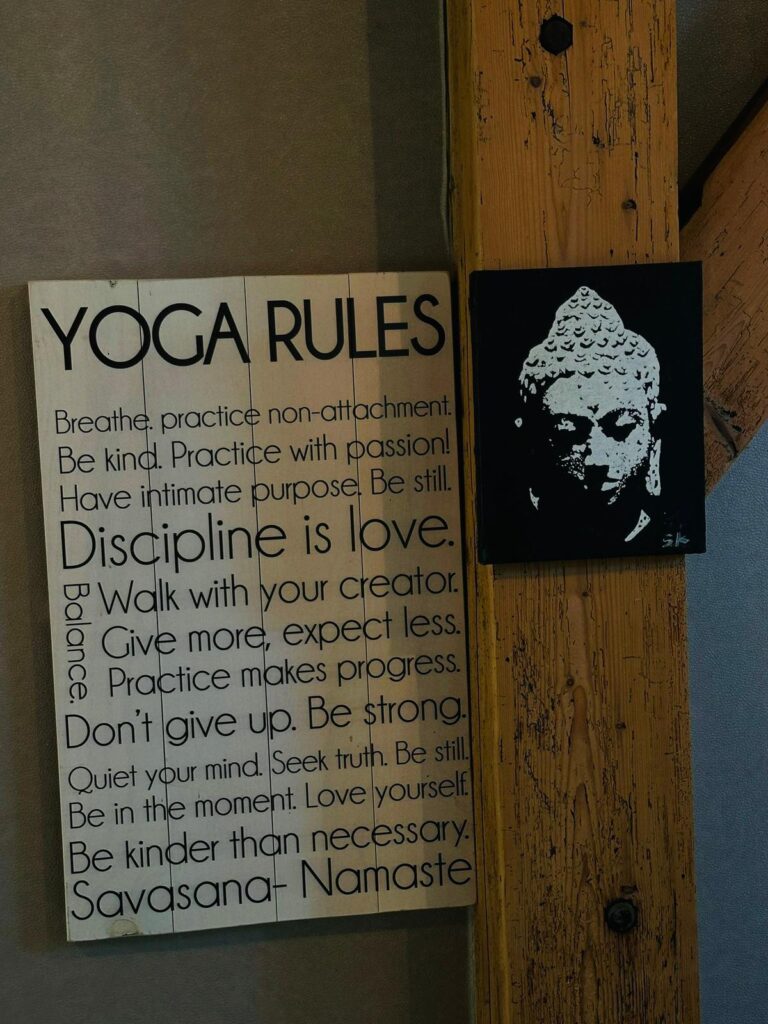 YOGA RULES
Breathe. practice non-attachment.
Be kind. Practice with passion!
Have intimate purpose. Be still.
Discipline is love.
Balance.
Walk with your creator.
Give more, expect less.
Practice makes progress.
Don't give up. Be strong.
Quiet your mind. Seek truth. Be still.
Be in the moment. Love yourself.
Be kinder than necessary.
Savasana- Namaste